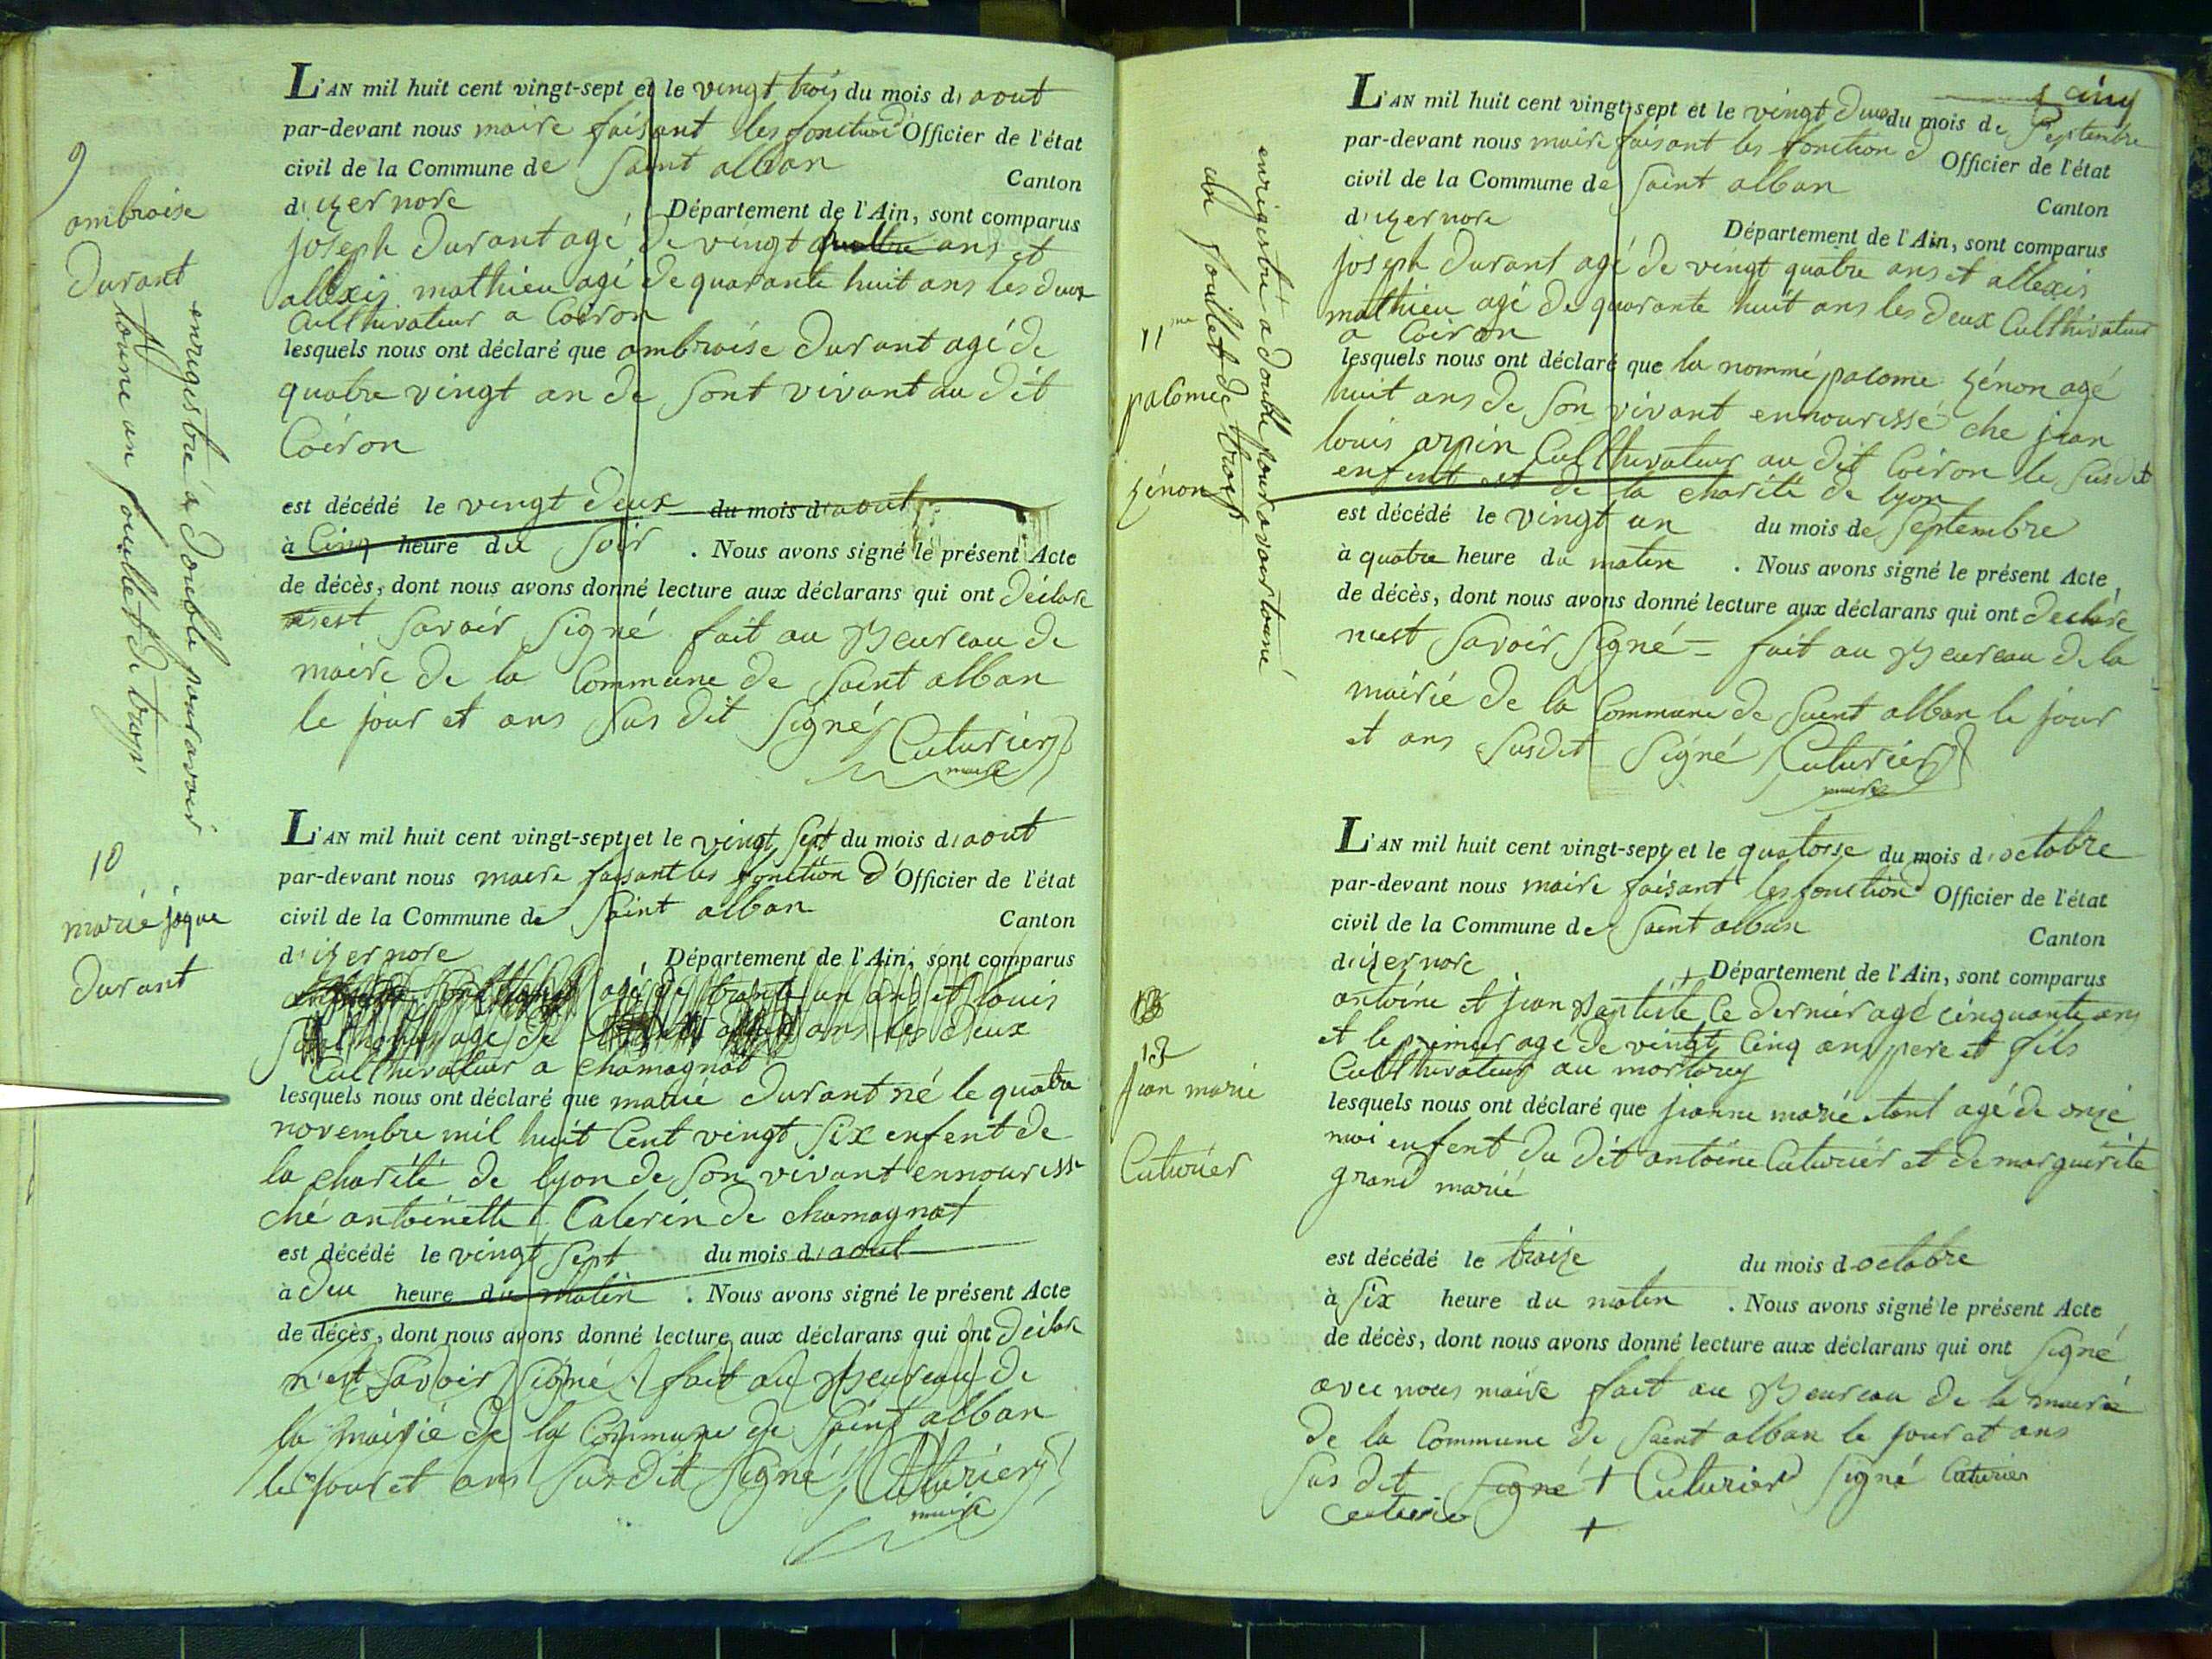 9
ambroise
Durant
enrigestré a double pour avoir
tourné un foullet de trop
L'AN mil huit cent vingt-sept et le vingt trois du mois d'aout
par-devant nous maire faisant les fonction d'Officier de l'état
civil de la Commune de Saint alban Canton
d'izernore Département de l'Ain, sont comparus
joseph Durant agé de vingt quattre ans et
allexis mathieu agé de quarante huit ans les deux
Culthivateur a Coiron
lesquels nous ont déclaré que ambroise Durant agé de
quatre vingt an de sont vivant au dit
Coiron
est décédé le vingt deux du mois d'aout
à Cinq heure du soir . Nous avons signé le présent Acte
de décès, dont nous avons donné lecture aux déclarans qui ont déclare
n'est savoir signé fait au Beureau de
maire de la Commune de Saint alban
le jour et ans sus dit signé Cuturier
maire
10
marie joque
Durant
L'AN mil huit cent vingt-sept et le vingt sept du mois d'aout
par-devant nous maire faisant les fonction d'Officier de l'état
civil de la Commune de Saint alban Canton
d'izernore Département de l'Ain, sont comparus
agé de trante un ans et louis
agé de ans les deux
Culthivateur a chamagnat
lesquels nous ont déclaré que marie Durant né le quatre
novembre mil huit Cent vingt six enfent de
la charité de lyon de son vivant ennouriss
ché antoinette Calerin de chamagnat
est décédé le vingt sept du mois d'aout
à deu heure du matin . Nous avons signé le présent Acte
de décès, dont nous avons donné lecture aux déclarans qui ont déclare
n'est savoir signé fait au Beureau de
la mairie de la Commune de Saint alban
le jour et ans sus dit signé Cuturier
maire
cinq
11me
palomee
zénon
enrigestré a double pour avoir tourné
un foullet de trop
L'AN mil huit cent vingt-sept et le vingt deux du mois de Septembre
par-devant nous maire faisant les fonction d Officier de l'état
civil de la Commune de Saint alban Canton
d'izernore Département de l'Ain, sont comparus
joseph Durant agé de vingt quatre ans et allexis
mathieu agé de quarante huit ans les deux Culthivateur
a Coiron
lesquels nous ont déclaré que la nommé palome zénon agé
huit ans de son vivant ennourissé che jean
louis arpin Culthivateur au dit Coiron le susdit
enfent et de la charité de lyon
est décédé le vingt un du mois de Septembre
à quatre heure du matin . Nous avons signé le présent Acte
de décès, dont nous avons donné lecture aux déclarans qui ont declare
nest savoir signé = fait au Beureau de la
mairie de la Commune de Saint alban le jour
et ans susdit signé Cuturier
maire
12
jean marie
Cuturier
L'AN mil huit cent vingt-sept et le quatorse du mois d'octobre
par-devant nous maire faisant les fonction d Officier de l'état
civil de la Commune de Saint alban Canton
d'izernore Département de l'Ain, sont comparus
antoine et jean Baptiste le dernier agé cinquante ans
et le premier agé de vingt Cinq ans pere et fils
Culthivateur au mortarey
lesquels nous ont déclaré que jeanne marie tout agé de onze
moi enfent du dit antoine Cuturier et de marguerite
grand marie
est décédé le traize du mois d octobre
à Six heure du matin . Nous avons signé le présent Acte
de décès, dont nous avons donné lecture aux déclarans qui ont signé
avec nous maire fait au Beureau de la mairie
de la Commune de Saint alban le jour et ans
sus dit signé + Cuturier signé Cuturier
Cuturier +